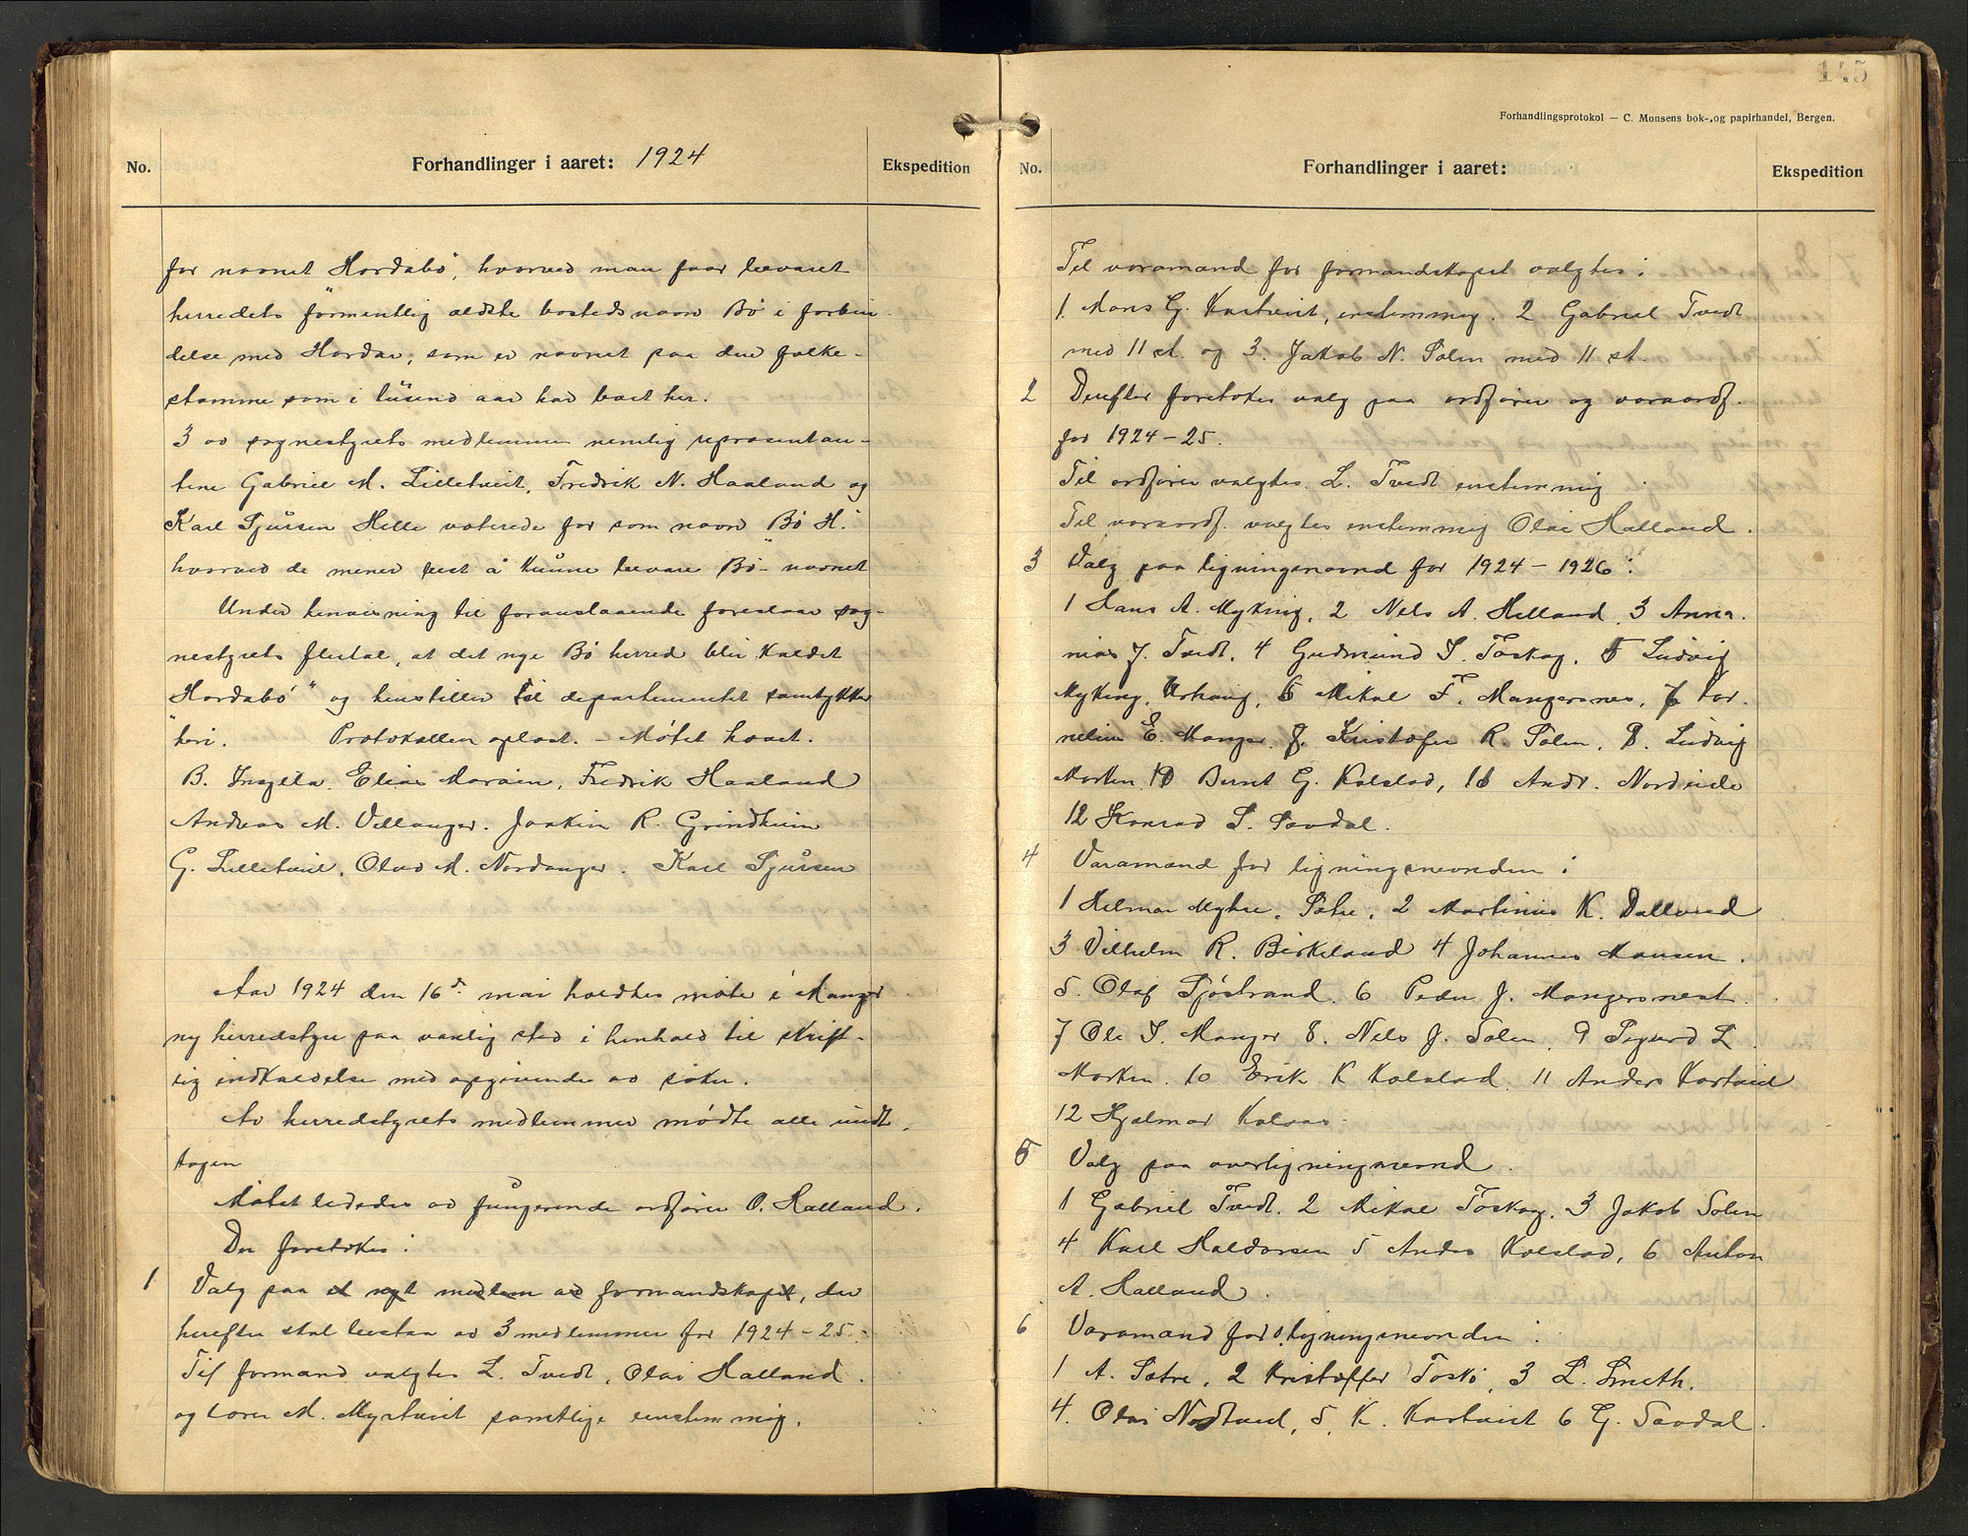 No.
Forhandlinger i aaret: 1924
Ekspedition
for navnet Hordabø", hvorved man faar bevaret
herredets formentlig ældste bostedsnavn "Bø" i forbin-
delse med Hordar, som er navnet paa den folke-
stamme som i tusend aar har boet her.
3 av sognestyrets medlemmer nemlig repræsentan-
tene Gabriel M. Lilletveit, Fredrik N. Haaland og
Karl Sjursen Helle voterede for som navn "Bø H."
hvorved de mener best å kunne bevare Bø-navnet
Under henvisning til foranstaaende foreslaar sog-
nestyrets flertal, at det nye Bø herred blir kaldet
"Hordabø" og henstiller til departementet samtykker
heri. Protokollen oplæst. - Møtet hævet.
B. Elias Marøen, Fredrik Haaland
Andreas M. Villanger. Joakim R. Grindheim
G. Lilletveit, Olav M. Nordanger. Karl Sjursen
Aar 1924 den 16de mai holdtes møte i Manger
ny herredstyre paa vanlig sted i henhold til skrift-
lig indkaldelse med opgivende av saker.
Av herredstyrets medlemmer mødte alle undt.
tagen
Møtet lededes av fungerende ordfører O. Halland.
Der foretokes:
1 Valg paa et nyt medlem av formandskapet, der
herefter skal bestaa av 3 medlemmer for 1924-25.
Til formand valgtes L. Tvedt, Olai Halland.
og Lorens M. Myrtveit samtlige enstemmig.
145
Forhandlingsprotokol — C. Monsens bok- og papirhandel, Bergen.
No.
Forhandlinger i aaret:
Ekspedition
Til varamænd for formandskapet valgtes:
1. Mons G. Kartveit, enstemmig. 2 Gabriel Tvedt
med 11 st. og 3. Jakob N. Solem med 11 st.
2 Derefter foretokes valg paa ordfører og varaordf.
for 1924-25.
Til ordfører valgtes L. Tvedt enstemmig
Til varaordf. valgtes enstemmig Olai Halland.
3 Valg paa ligningsnævnd for 1924-1926:
1 Hans A. Myking, 2 Nels A. Helland, 3 Anna-
nias J. Tvedt, 4 Gudmund I. Toskag, 5 Ludvig
Myking, 6 Mikal F. Mangersnes, 7 Kor-
nelius E. Manger, Kristofer R. Solem, Ludvig
Morken 10 Bernt G. Kolstad, 11 Andr. Nordeide
12 Konrad S. Sævdal.
4 Varamænd for ligningsnevnden:
1 Hilmar Myhre, Sætre, 2 Martinus K. Dalland
3 Vilhelm R. Birkeland 4 Johannes Hansen.
5. Olaf Sjøstrand. 6 Peder J. Mangersnest.
7 Ole I. Manger 8. Nels J. Solem, 9 Sigurd L.
Morken. 10 Erik K Kolstad. 11 Anders Kartveit
12 Hjalmar Kolaas.
5 Valg paa overligningsnevnd.
1 Gabriel Tvedt. 2 Mikal Toskag. 3 Jakob Solem
4 Karl Haldorsen 5 Anders Kolstad, 6 Anton
A. Halland.
6 Varamænd for o.ligningsnevnden:
1 A. Sætre, 2 Kristoffer Toskø, 3 L. Smeth.
4. Olai Nordtveit, 5. K. Kartveit 6 G. Sævdal.